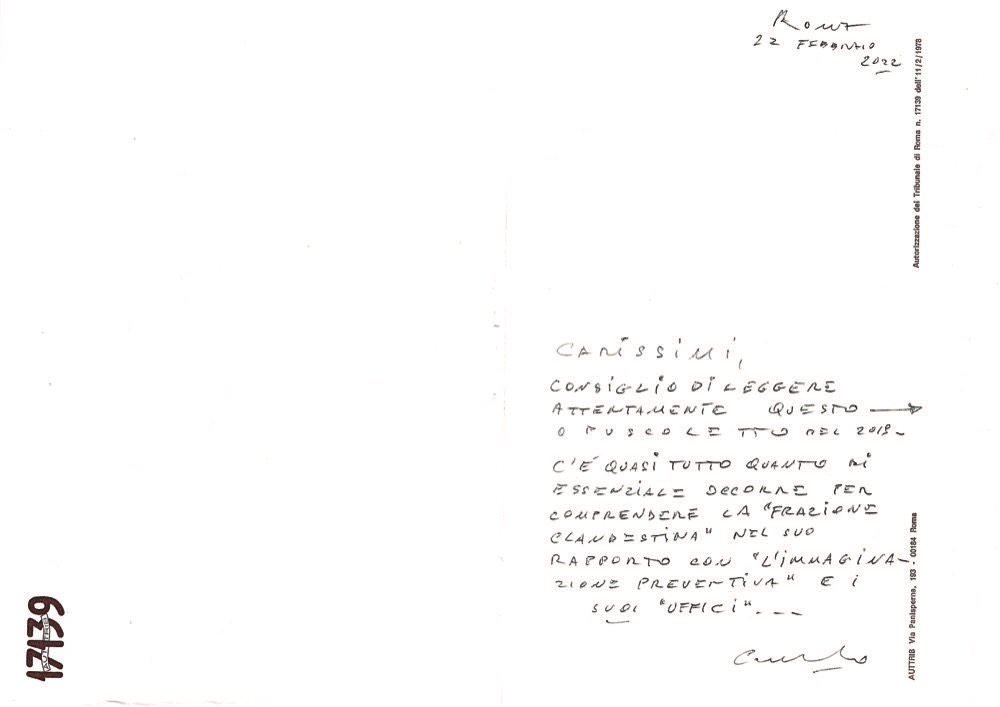 ROMA
22 FEBBRAIO
2022
Autorizzazione del Tribunale di Roma n. 17139 dell'11/2/1978
CARISSIMI,
CONSIGLIO DI LEGGERE
ATTENTAMENTE QUESTO →
OPUSCOLETTO DEL
C'È QUASI TUTTO QUANTO DI
ESSENZIALE OCCORRE PER
COMPRENDERE LA "FRAZIONE
CLANDESTINA" NEL SUO
RAPPORTO CON "L'IMMAGINA-
ZIONE PREVENTIVA" E I
SUOI "UFFICI"...
AUTTRIB Via Panisperna, 193 - 00184 Roma
17139